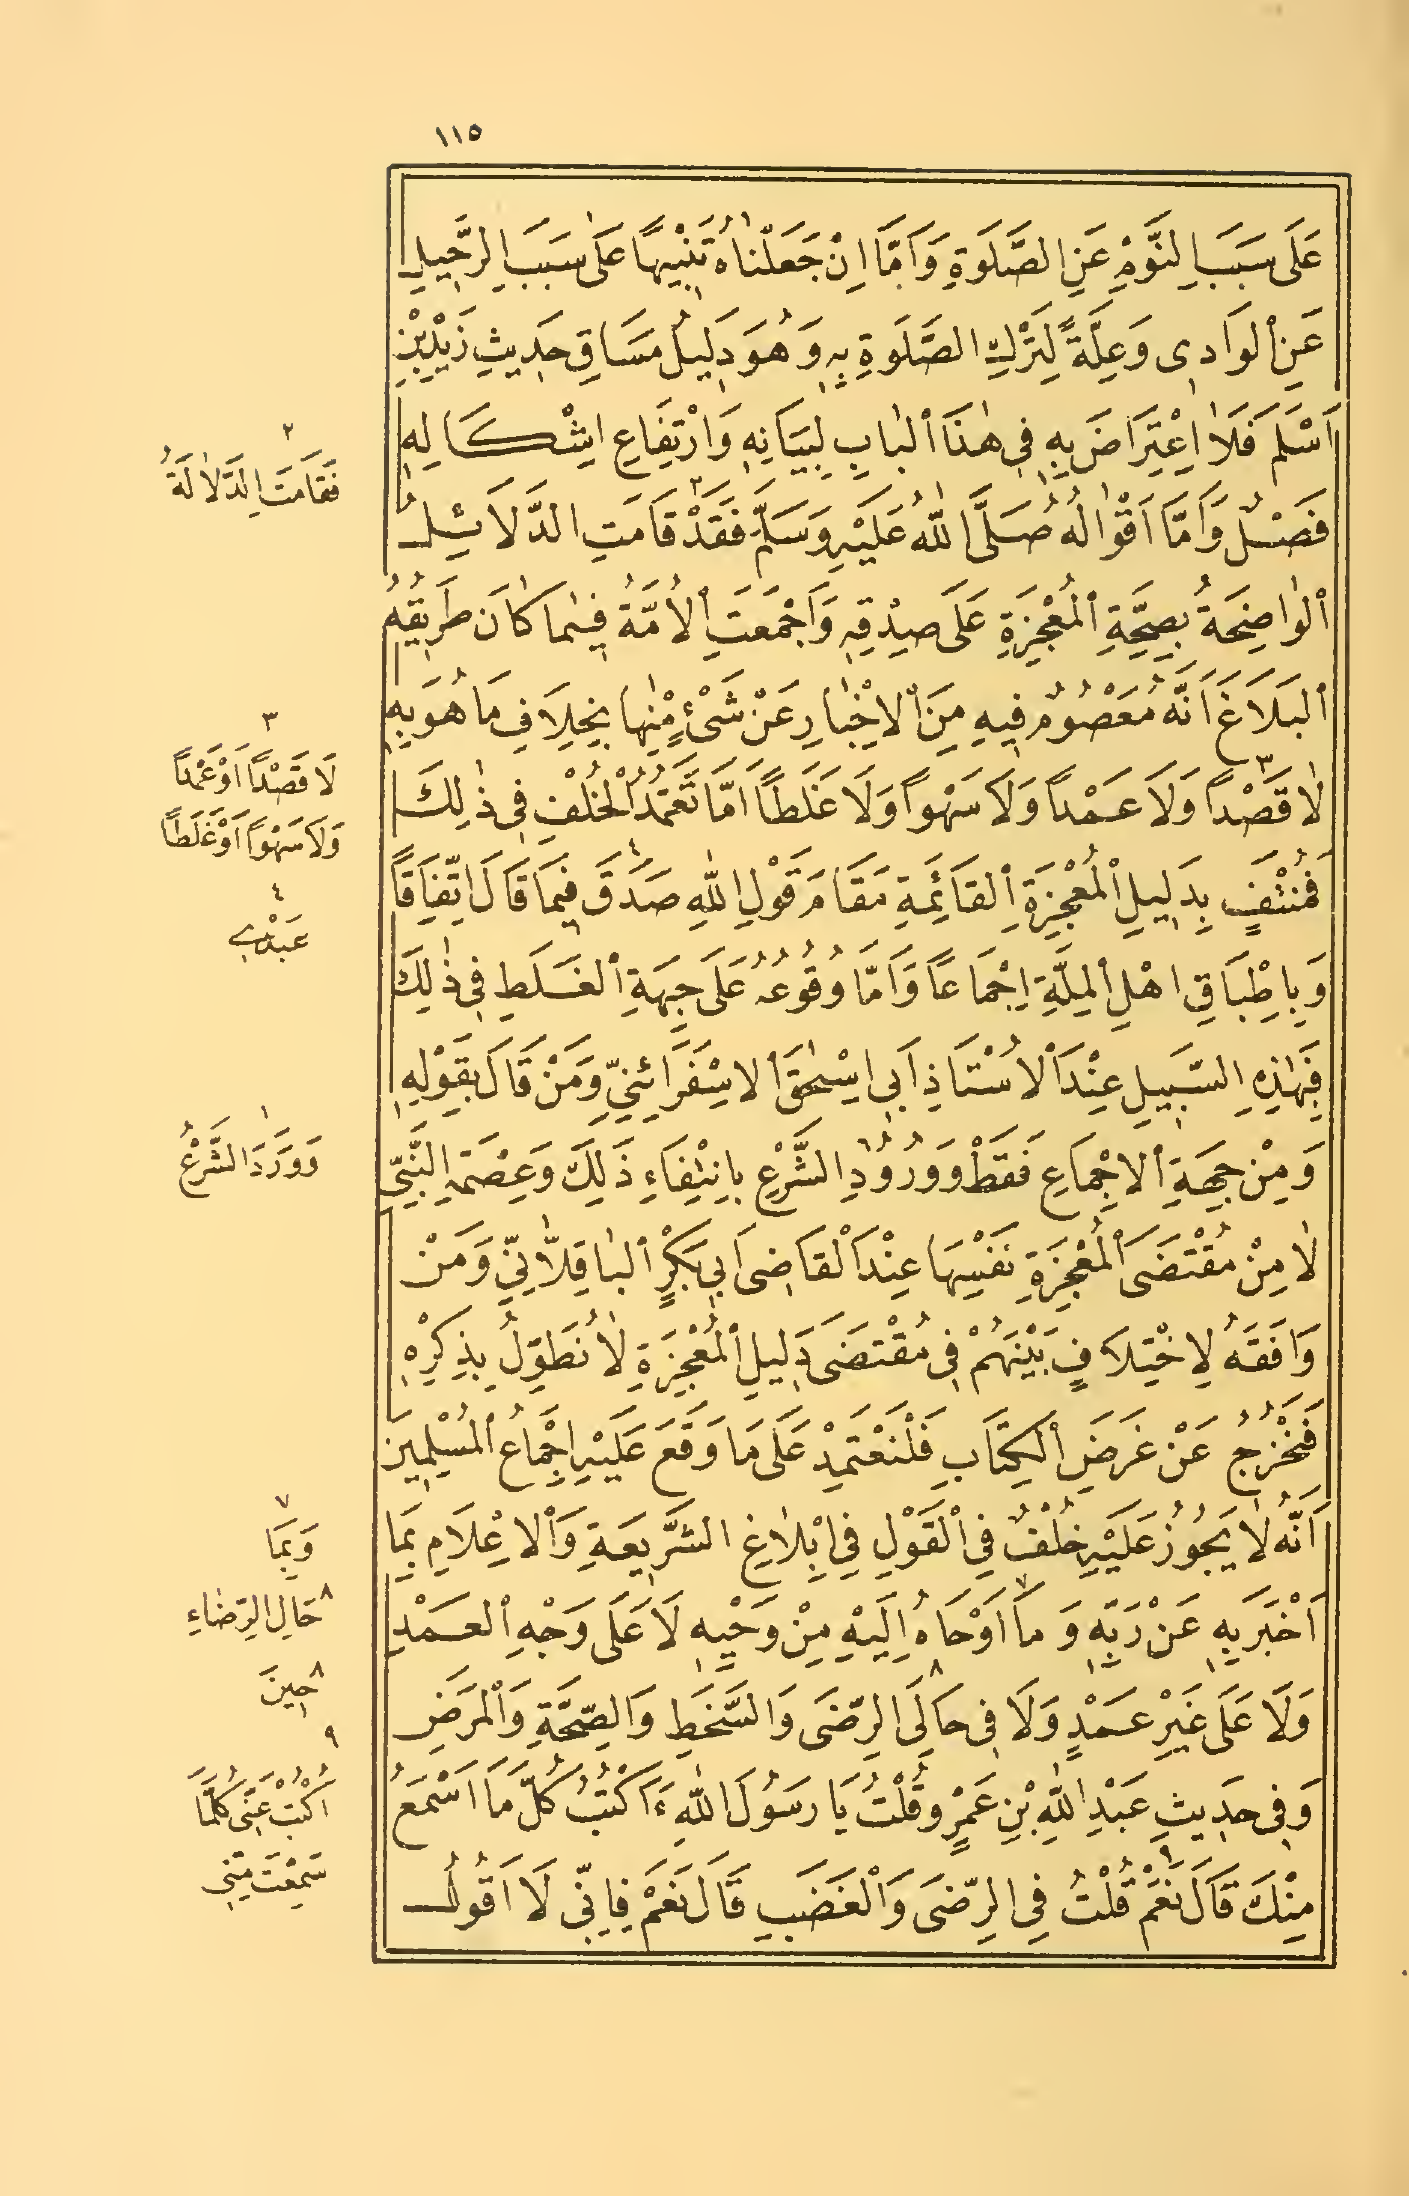 ١١٥
عَلَى سَبَبِ النَّوْمِ عَنِ الصَّلَوةِ وَاَمَّا اِنْ جَعَلْنَاهُ تَنْبِيهًا عَلَى سَبَبِ الرَّحِيلِ
عَنِ الْوَادِى وَعِلَّةً لِتَرْكِ الصَّلَوةِ بِهِ وَهُوَ دَلِيلُ مَسَاقِ حَدِيثِ زَيْدِ بْنِ
اَسْلَمَ فَلَا اعْتِرَاضَ بِهِ فِى هٰذَا الْبَابِ لِبَيَانِهِ وَارْتِفَاعِ اِشْكَالِهِ
فَصْلٌ وَاَمَّا اَقْوَالُهُ صَلَّى اللّٰهُ عَلَيْهِ وَسَلَّمَ فَقَدْ ٢ قَامَتِ الدَّلَائِلُ
الْوَاضِحَةُ بِصِحَّةِ الْمُعْجِزَةِ عَلَى صِدْقِهِ وَاَجْمَعَتِ الْاُمَّةُ فِيمَا كَانَ طَرِيقُهُ
الْبَلَاغَ اَنَّهُ مَعْصُومٌ فِيهِ مِنَ الْاِخْبَارِ عَنْ شَىْءٍ مِنْهَا بِخِلَافِ مَا هُوَ بِهِ
٣ لَا قَصْدًا وَلَا عَمْدًا وَلَا سَهْوًا وَلَا غَلَطًا اَمَّا تَعَمُّدُ الْخُلْفِ فِى ذٰلِكَ
فَمُنْتَفٍ بِدَلِيلِ الْمُعْجِزَةِ الْقَائِمَةِ مَقَامَ قَوْلِ اللّٰهِ صَدَقَ ٤ فِيمَا قَالَ اتِّفَاقًا
وَبِاِطْبَاقِ اَهْلِ الْمِلَّةِ اِجْمَاعًا وَاَمَّا وُقُوعُهُ عَلَى جِهَةِ الْغَلَطِ فِى ذٰلِكَ
فَبِهٰذِهِ السَّبِيلِ عِنْدَ الْاُسْتَاذِ اَبِى اِسْحٰقَ الْاِسْفَرَائِنِىِّ وَمَنْ قَالَ بِقَوْلِهِ
وَمِنْ جِهَةِ الْاِجْمَاعِ فَقَطْ وَوُرُودِ ١ الشَّرْعِ بِانْتِفَاءِ ذَلِكَ وَعِصْمَةِ النَّبِىِّ
لَا مِنْ مُقْتَضَى الْمُعْجِزَةِ نَفْسِهَا عِنْدَ الْقَاضِى اَبِى بَكْرٍ الْبَاقِلَّانِىِّ وَمَنْ
وَافَقَهُ لِاخْتِلَافٍ بَيْنَهُمْ فِى مُقْتَضَى دَلِيلِ الْمُعْجِزَةِ لَا نُطَوِّلُ بِذِكْرِهِ
فَنَخْرُجُ عَنْ غَرَضِ الْكِتَابِ فَلْنَعْتَمِدْ عَلَى مَا وَقَعَ عَلَيْهِ اِجْمَاعُ الْمُسْلِمِينَ
اَنَّهُ لَا يَجُوزُ عَلَيْهِ خُلْفٌ فِى الْقَوْلِ فِى اِبْلَاغِ الشَّرِيعَةِ وَالْاِعْلَامِ بِمَا
اَخْبَرَ بِهِ عَنْ رَبِّهِ وَ ٧ مَا اَوْحَاهُ اِلَيْهِ مِنْ وَحْيِهِ لَا عَلَى وَجْهِ الْعَمْدِ
وَلَا عَلَى غَيْرِ عَمْدٍ وَلَا فِى حَالَىِ ٨ الرِّضَى وَالسَّخَطِ وَالصِّحَّةِ وَالْمَرَضِ
وَفِى حَدِيثِ عَبْدِ اللّٰهِ بْنِ عَمْرٍو قُلْتُ يَا رَسُولَ اللّٰهِ ءَاَكْتُبُ كُلَّ مَا اَسْمَعُ
مِنْكَ ٩ قَالَ نَعَمْ قُلْتُ فِى الرِّضَى وَالْغَضَبِ قَالَ نَعَمْ فَاِنِّى لَا اَقُولُ
٢
فَقَامَتِ الدَّلَالَةُ
٣
لَا قَصْدًا اَوْ عَمْدًا
وَلَا سَهْوًا اَوْ غَلَطًا
٤
عَبْدِى
١
وَوَرَدَ الشَّرْعُ
٧
وَبِمَا
٨ حَالِ الرِّضَاءِ
٨ حِينَ
٩
اَكْتُبُ عَنْكَ كُلَّمَا
سَمِعْتُ مِنِّى